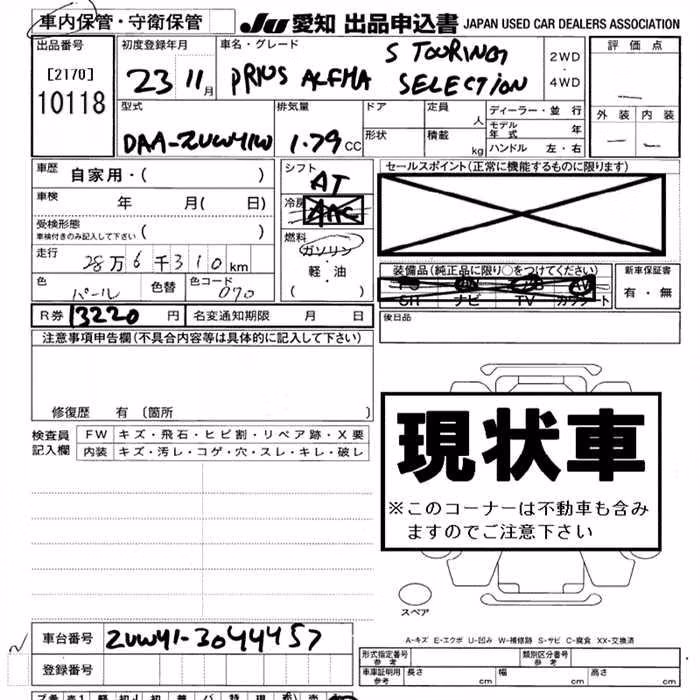 車内保管・守衛保管 JU 愛知 出品申込書 JAPAN USED CAR DEALERS ASSOCIATION
出品番号 初度登録年月 車名・グレード 評価点
[2170] 10118 23 11月 PRIUS ALFHA S TOURING SELECTION 2WD・4WD
外装 内装
型式 排気量 ドア 定員 人 ディーラー・並行
DAA-ZUW41W 1.79 CC 形状 積載 kg モデル年式 年
ハンドル 左・右
車歴 自家用・( ) シフト AT セールスポイント(正常に機能するものに限ります)
車検 年 月( 日) 冷房 AAC
受検形態 ( )
車検付きのみ記入して下さい
燃料 ガソリン・軽・油 ( )
走行 28万6千310km
色 パール 色替 色コード 070
装備品(純正品に限り○をつけてください) 新車保証書
ナビ TV 有・無
R券 13220円 名変通知期限 月 日 後日品
注意事項申告欄(不具合内容等は具体的に記入して下さい)
修復歴 有〔箇所 〕
検査員記入欄 FW キズ・飛石・ヒビ割・リペア跡・X要
内装 キズ・汚レ・コゲ・穴・スレ・キレ・破レ
現状車
※このコーナーは不動車も含み
ますのでご注意下さい
スペア
A-キズ E-エクボ U-凹み W-補修跡 S-サビ C-腐食 XX-交換済
車台番号 ZUW41-3044457
登録番号
形式指定番号 参考 類別区分番号 参考
車庫証明用 参考 長さ cm 幅 cm 高さ cm